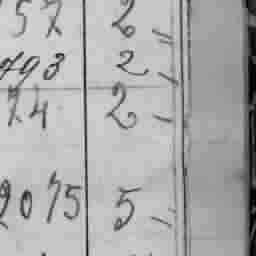 57 2 =
493 2 -
74 2 -
2075 5 =